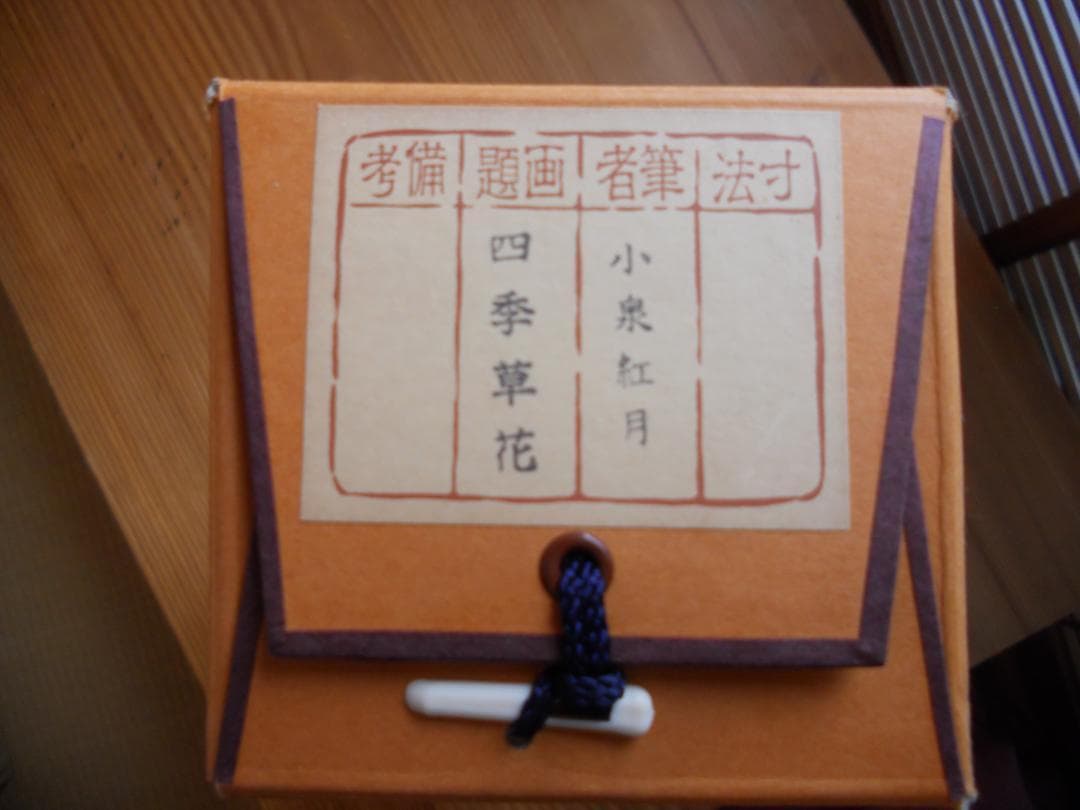 寸法
筆者
小泉紅月
画題
四季草花
備考